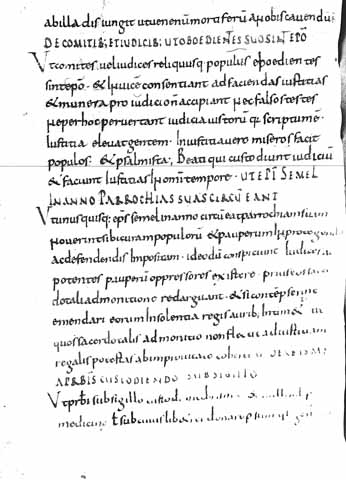 abilladis iungit ut venenum mortiferum a nobis cavendu
DE COMITIB; ET IUDICIB; UT OBOEDIENTES SUO SINT EPO
Ut comites vel iudices reliqusq; populus epo oedientes
sint epo & invice consentiant ad faciendas iustitias
& munera pro iudicio non accipiant nec falsos testes
ne per hos pervertant iudicia iustorum q scriptum e
Iustitia elevat gentem Iniustitia vero miseros facit
populos & psalmista; Beati qui custodiunt iudiciu
& faciunt Iustitias In omni tempore UT EPI SEMEL
IN ANNO PARROCHIAS SUAS CIRCUEANT
Ut unusquisq; eps semel in anno circueat parrochiam suam
noverint sibi curam populorum & pauperum In protegendis
ac defendendis Impositam ideo dum conspiciunt Iudices
potentes pauperum oppressores existere prius
dotali admonitione redarguant & si contepserint
emendari eorum Insolentia regis aurib; Intim&
quos sacerdotalis admonitio non flectit ad iustitiam
regalis potestas ab improbitate UT
A PRBIS CUSTODIENDO SUB SIGILLO
Ut prbi sub sigillo custod
medicine t sub cuiuslib&